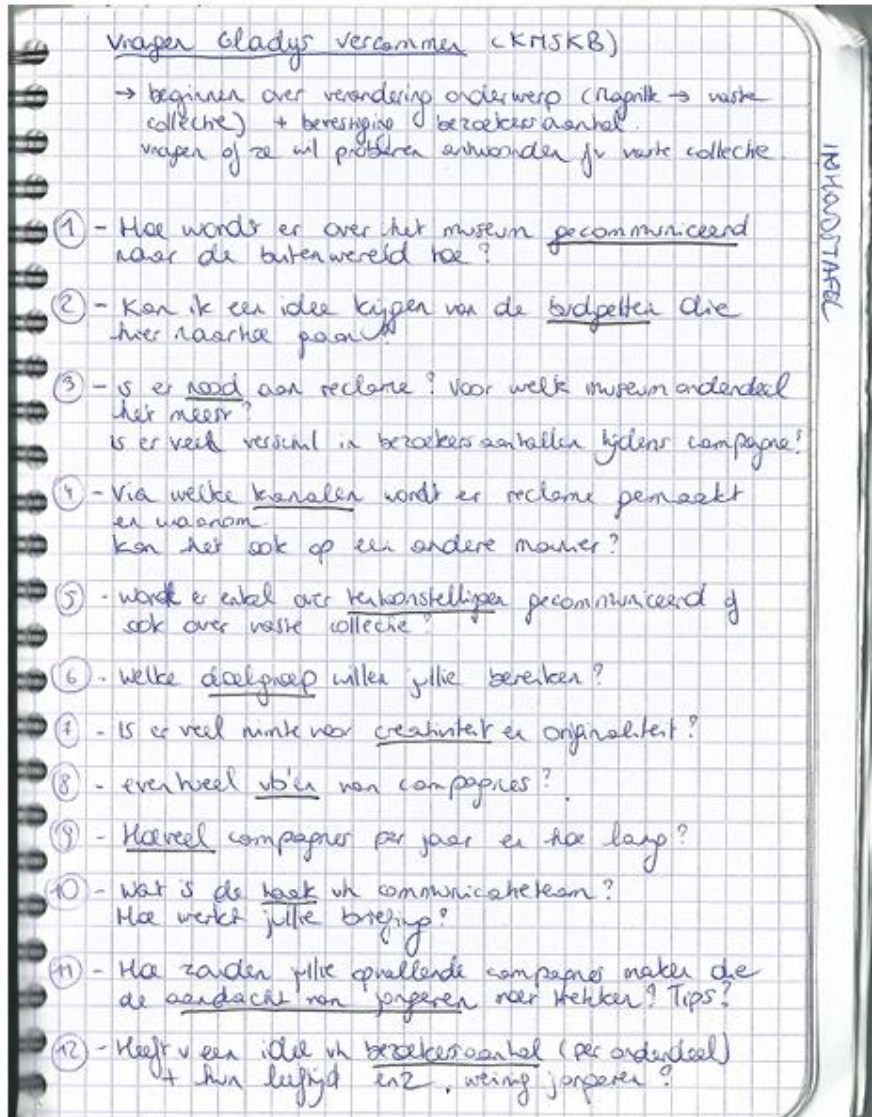 Vragen Gladys Vercammen (KMSKB)
→ beginnen over verandering onderwerp (Magritte → vaste
collectie) + bevestiging bezoekersaantal.
vragen of ze wil proberen antwoorden ifv vaste collectie
INHOUDSTAFEL
1 - Hoe wordt er over het museum gecommuniceerd
naar de buitenwereld toe?
2 - Kan ik een idee krijgen van de budgetten die
hier naartoe gaan?
3 - is er nood aan reclame? Voor welk museumonderdeel
het meest?
is er veel verschil in bezoekersaantallen tijdens campagne?
4 - Via welke kanalen wordt er reclame gemaakt
en waarom.
Kan het ook op een andere manier?
5 - wordt er enkel over tentoonstellingen gecommuniceerd of
ook over vaste collectie?
6 - welke doelgroep willen jullie bereiken?
7 - Is er veel ruimte voor creativiteit en originaliteit?
8 - eventueel vb'en van campagnes?
9 - Hoeveel campagnes per jaar en hoe lang?
10 - Wat is de taak vh communicatieteam?
Hoe werkt jullie briefing?
11 - Hoe zouden jullie opvallende campagnes maken die
de aandacht van jongeren meer trekken? Tips?
12 - Heeft u een idee vh bezoekersaantal (per onderdeel)
+ hun leeftijd enz. weinig jongeren?